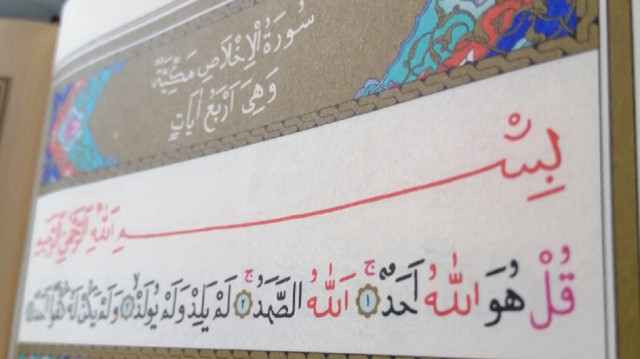 سُورَةُ الْإِخْلَاصِ مَكِّيَّةٌ
وَهِيَ أَرْبَعُ آيَاتٍ
بِسْمِ اللّٰهِ الرَّحْمٰنِ الرَّحِيمِ
قُلْ هُوَ اللّٰهُ أَحَدٌ ۚ ١ اَللّٰهُ الصَّمَدُ ۚ ٢ لَمْ يَلِدْ وَلَمْ يُولَدْ ۙ ٣ وَلَمْ يَكُنْ لَهُ كُفُوًا أَحَدٌ